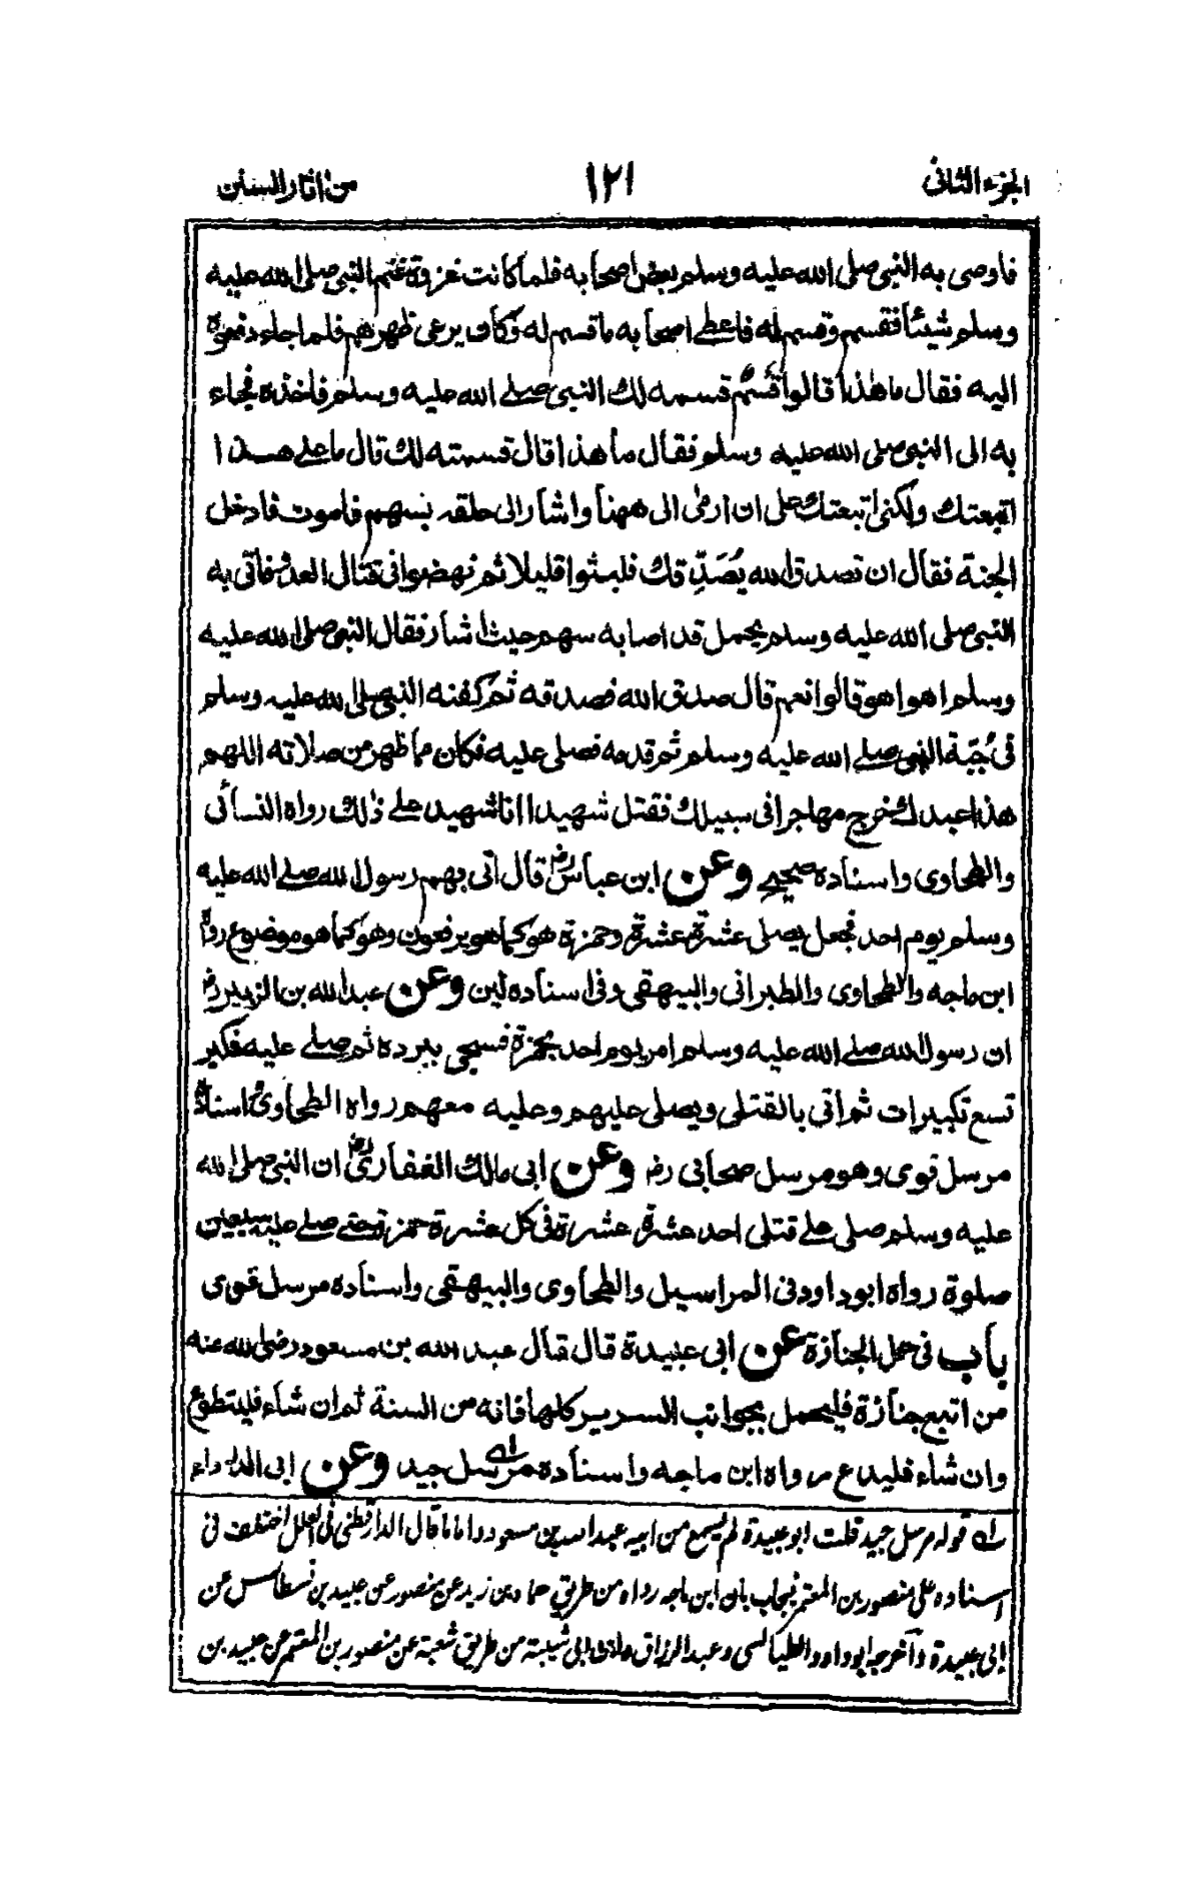 الجزء الثاني ١٢١ من آثار السنن
فاوصى به النبي صلى الله عليه وسلم بعض اصحابه فلما كانت غزوة غنم النبي صلى الله عليه
وسلم شيئا فقسم وقسم له فاعطى اصحابه ما قسم له وكان يرعى ظهرهم فلما جاء دفعوه
اليه فقال ما هذا قالوا قسم قسمه لك النبي صلى الله عليه وسلم فاخذه فجاء
به الى النبي صلى الله عليه وسلم فقال ما هذا قال قسمته لك قال ما على هذا
اتبعتك ولكنى اتبعتك على ان ارمى الى ههنا واشار الى حلقه بسهم فاموت فادخل
الجنة فقال ان تصدق الله يُصَدِّقك فلبثوا قليلا ثم نهضوا فى قتال العدو فاتى به
النبي صلى الله عليه وسلم يحمل قد اصابه سهم حيث اشار فقال النبي صلى الله عليه
وسلم اهو اهو قالوا نعم قال صدق الله فصدقه ثم كفنه النبي صلى الله عليه وسلم
فى جُبّة النبي صلى الله عليه وسلم ثم قدمه فصلى عليه فكان مما ظهر من صلاته اللهم
هذا عبدك خرج مهاجرا فى سبيلك فقتل شهيدا انا شهيد على ذلك رواه النسائى
والطحاوى واسناده صحيح وعن ابن عباس رض قال اتى بهم رسول الله صلى الله عليه
وسلم يوم احد فجعل يصلى على عشرة عشرة وحمزة هو كما هو يرفعون وهو كما هو موضوع رواه
ابن ماجه والطحاوى والطبرانى والبيهقى وفى اسناده لين وعن عبد الله بن الزبير رض
ان رسول الله صلى الله عليه وسلم امر يوم احد بحمزة فسجى ببرده ثم صلى عليه فكبر
تسع تكبيرات ثم اتى بالقتلى ويصلى عليهم وعليه معهم رواه الطحاوى واسناده
مرسل قوى وهو مرسل صحابى رض وعن ابى مالك الغفارى رض ان النبي صلى الله
عليه وسلم صلى على قتلى احد عشرة عشرة فى كل عشرة حمزة حتى صلى عليه سبعين
صلوة رواه ابو داود فى المراسيل والطحاوى والبيهقى واسناده مرسل قوى
باب فى حمل الجنازة عن ابى عبيدة قال قال عبد الله بن مسعود رضى الله عنه
من اتبع جنازة فليحمل بجوانب السرير كلها فانه من السنة ثم ان شاء فليتطوع
وان شاء فليدع رواه ابن ماجه واسناده مرسل جيد وعن ابى الدرداء
له قوله مرسل جيد قلت ابو عبيدة لم يسمع من ابيه عبد الله بن مسعود واما ما قال الدارقطنى فى العلل اختلف فى
اسناده على منصور بن المعتمر فيجاب بان ابن ماجه رواه من طريق حماد بن زيد عن منصور عن عبيد بن نسطاس عن
ابى عبيدة وآخرجه ابو داود الطيالسى وعبد الرزاق وابن ابى شيبة من طريق شعبة عن منصور بن المعتمر عن عبيد بن